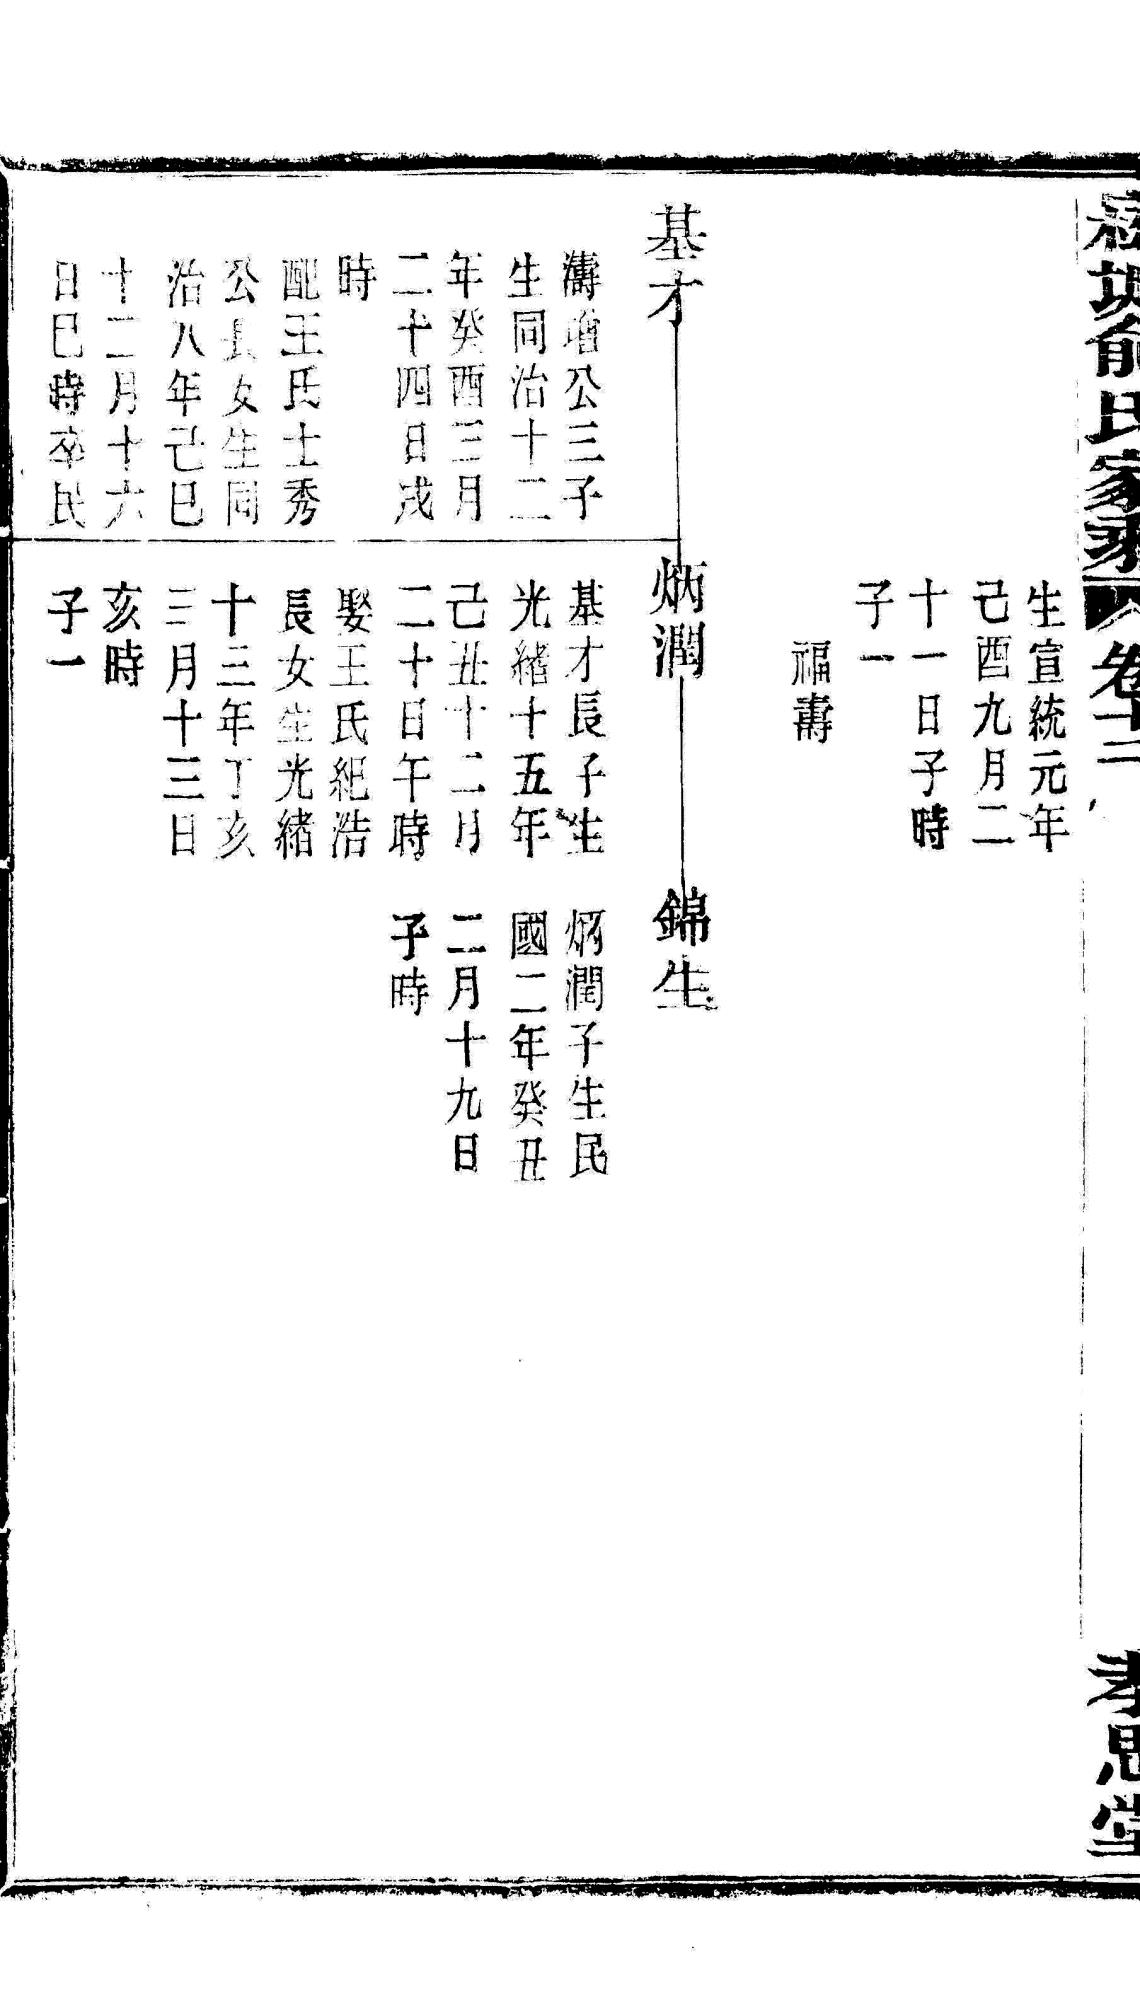 俞氏家乘
卷十二
孝思堂
生宣統元年
己酉九月二
十一日子時
子一
福壽
基才
濤增公三子
生同治十二
年癸酉三月
二十四日戌
時
配王氏士秀
公長女生同
治八年己巳
十二月十六
日巳時卒民
炳潤
基才長子生
光緒十五年
己丑十二月
二十日午時
娶王氏紀浩
長女生光緒
十三年丁亥
三月十三日
亥時
子一
錦生
炳潤子生民
國二年癸丑
二月十九日
子時